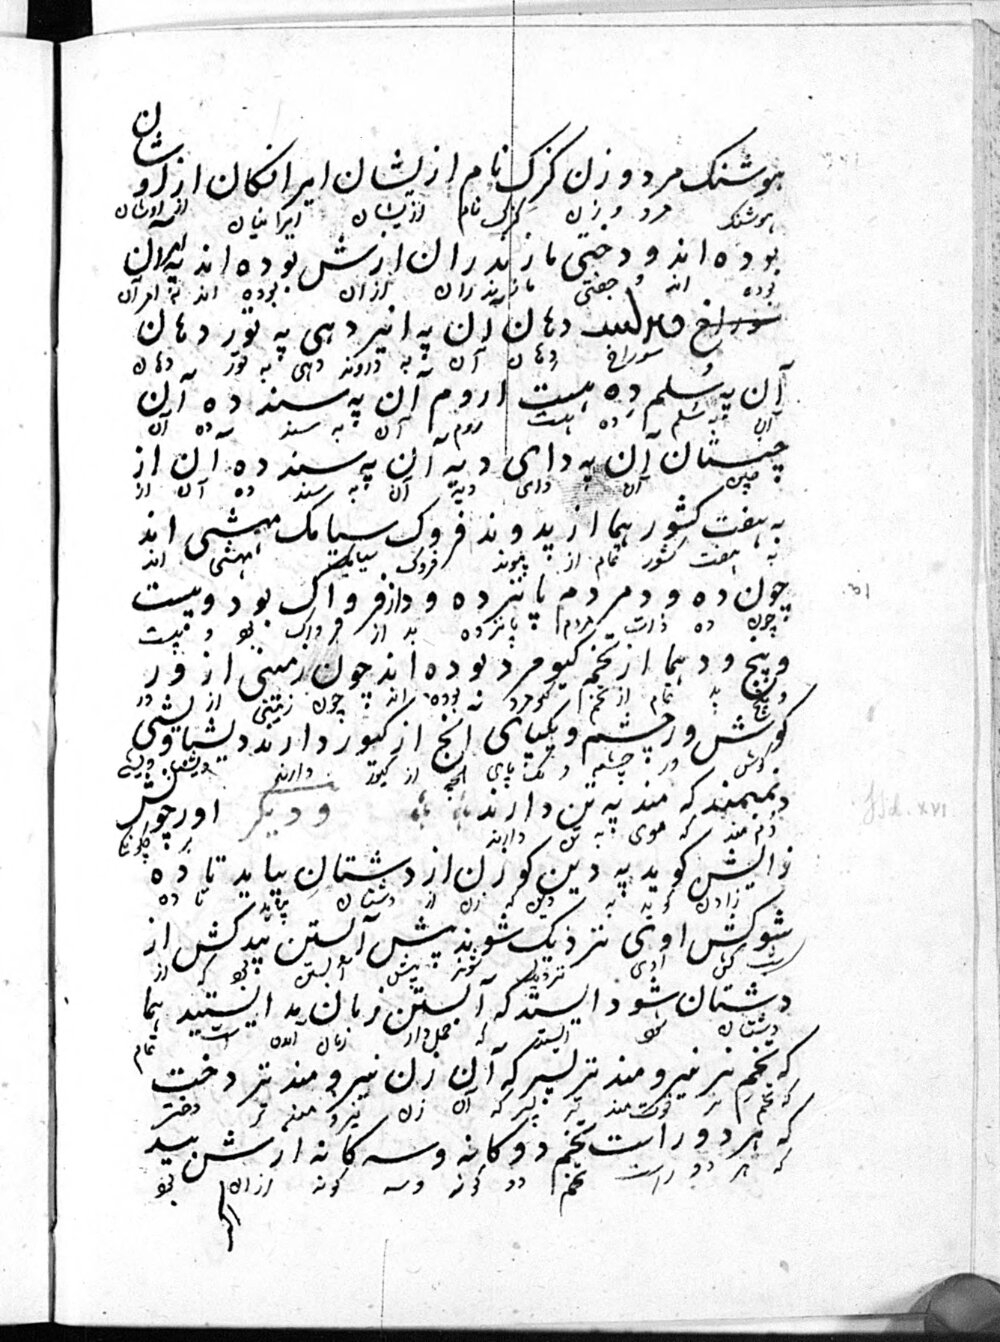 شان
هوشنک مرد و زن کزک نام ازیشان ایرانکان از او
هوشنک مرد و زن کزک نام ازیشان ایرانیان از اوشان
بوده اند و دختی مازندران ازش بوده اند په آن
بوده اند و جفتی مازندران ازان بوده اند به آن
سوراخ دهان آن په انیر دهی په تور دهان
سوراخ دهان آن به دهی به تور دهان
آن په سلم ده هست اروم آن په سند ده آن
آن به سلم ده هست روم آن به سند ده آن
چینستان آن په دای دیه آن په سند ده آن از
چین آن دای دیه آن به سند ده آن از
به هفت کشور هما از پدوند فروک سیامک مهشی اند
به هفت کشور تمام از پیوند فروک سیامک مهشی اند
چون ده ود مردم پانزده ود از فرواک بود و بیست
چون ده ذات مردم پانزده بد از فرواک بو و بیست
و پنج ود هما از تخم کیومرد بوده اند چون زمینی از ور
و پنج بد تمام از تخم کیومرد بوده اند چون زمینی از در
کوش ور چشم و یکپای انج از کیور دارند
کوش ور چشم و یک پای انچه از کیور دارند
دنمبمند که مند په تن دارند و دیکر اور چونش
دم مند که موی به تن دارند بر چکونه
زایشن کوید په دین کو زن از دشتان بیاید تا ده
زادن کوید به دین که زن از دشتان بیاید تا ده
شو کش اوی نزدیک شوند پیش آبستن بید کش از
شب کش اوی نزدیک شوند پیش آبستن بو که از
دشتان شود ایستد که آبستن زمان بد ایستید هما
دشتان شو ایستد که حمل دار زمان آمدن است تمام
که تخم نر نیرومند تر پسر که آن زن نیرومند تر دخت
که تخم نر قوت مند تر پسر که آن زن نیرومند تر دختر
که هر دو راست تخم دوکانه و سه کانه ازش بید
که هر دو راست تخم دو کونه وسه کونه ازان بو
اکر